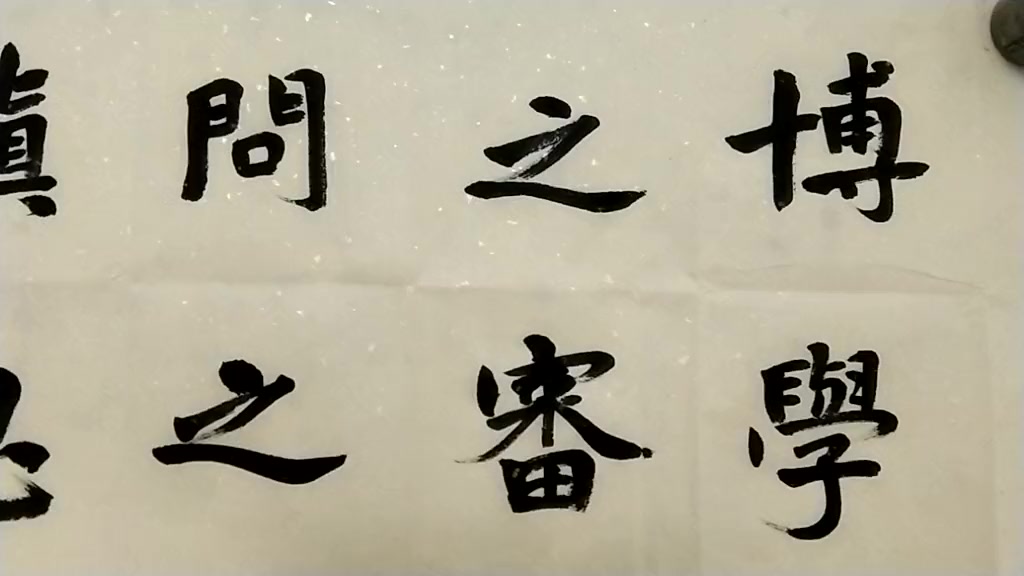 博學
之審
問之
慎